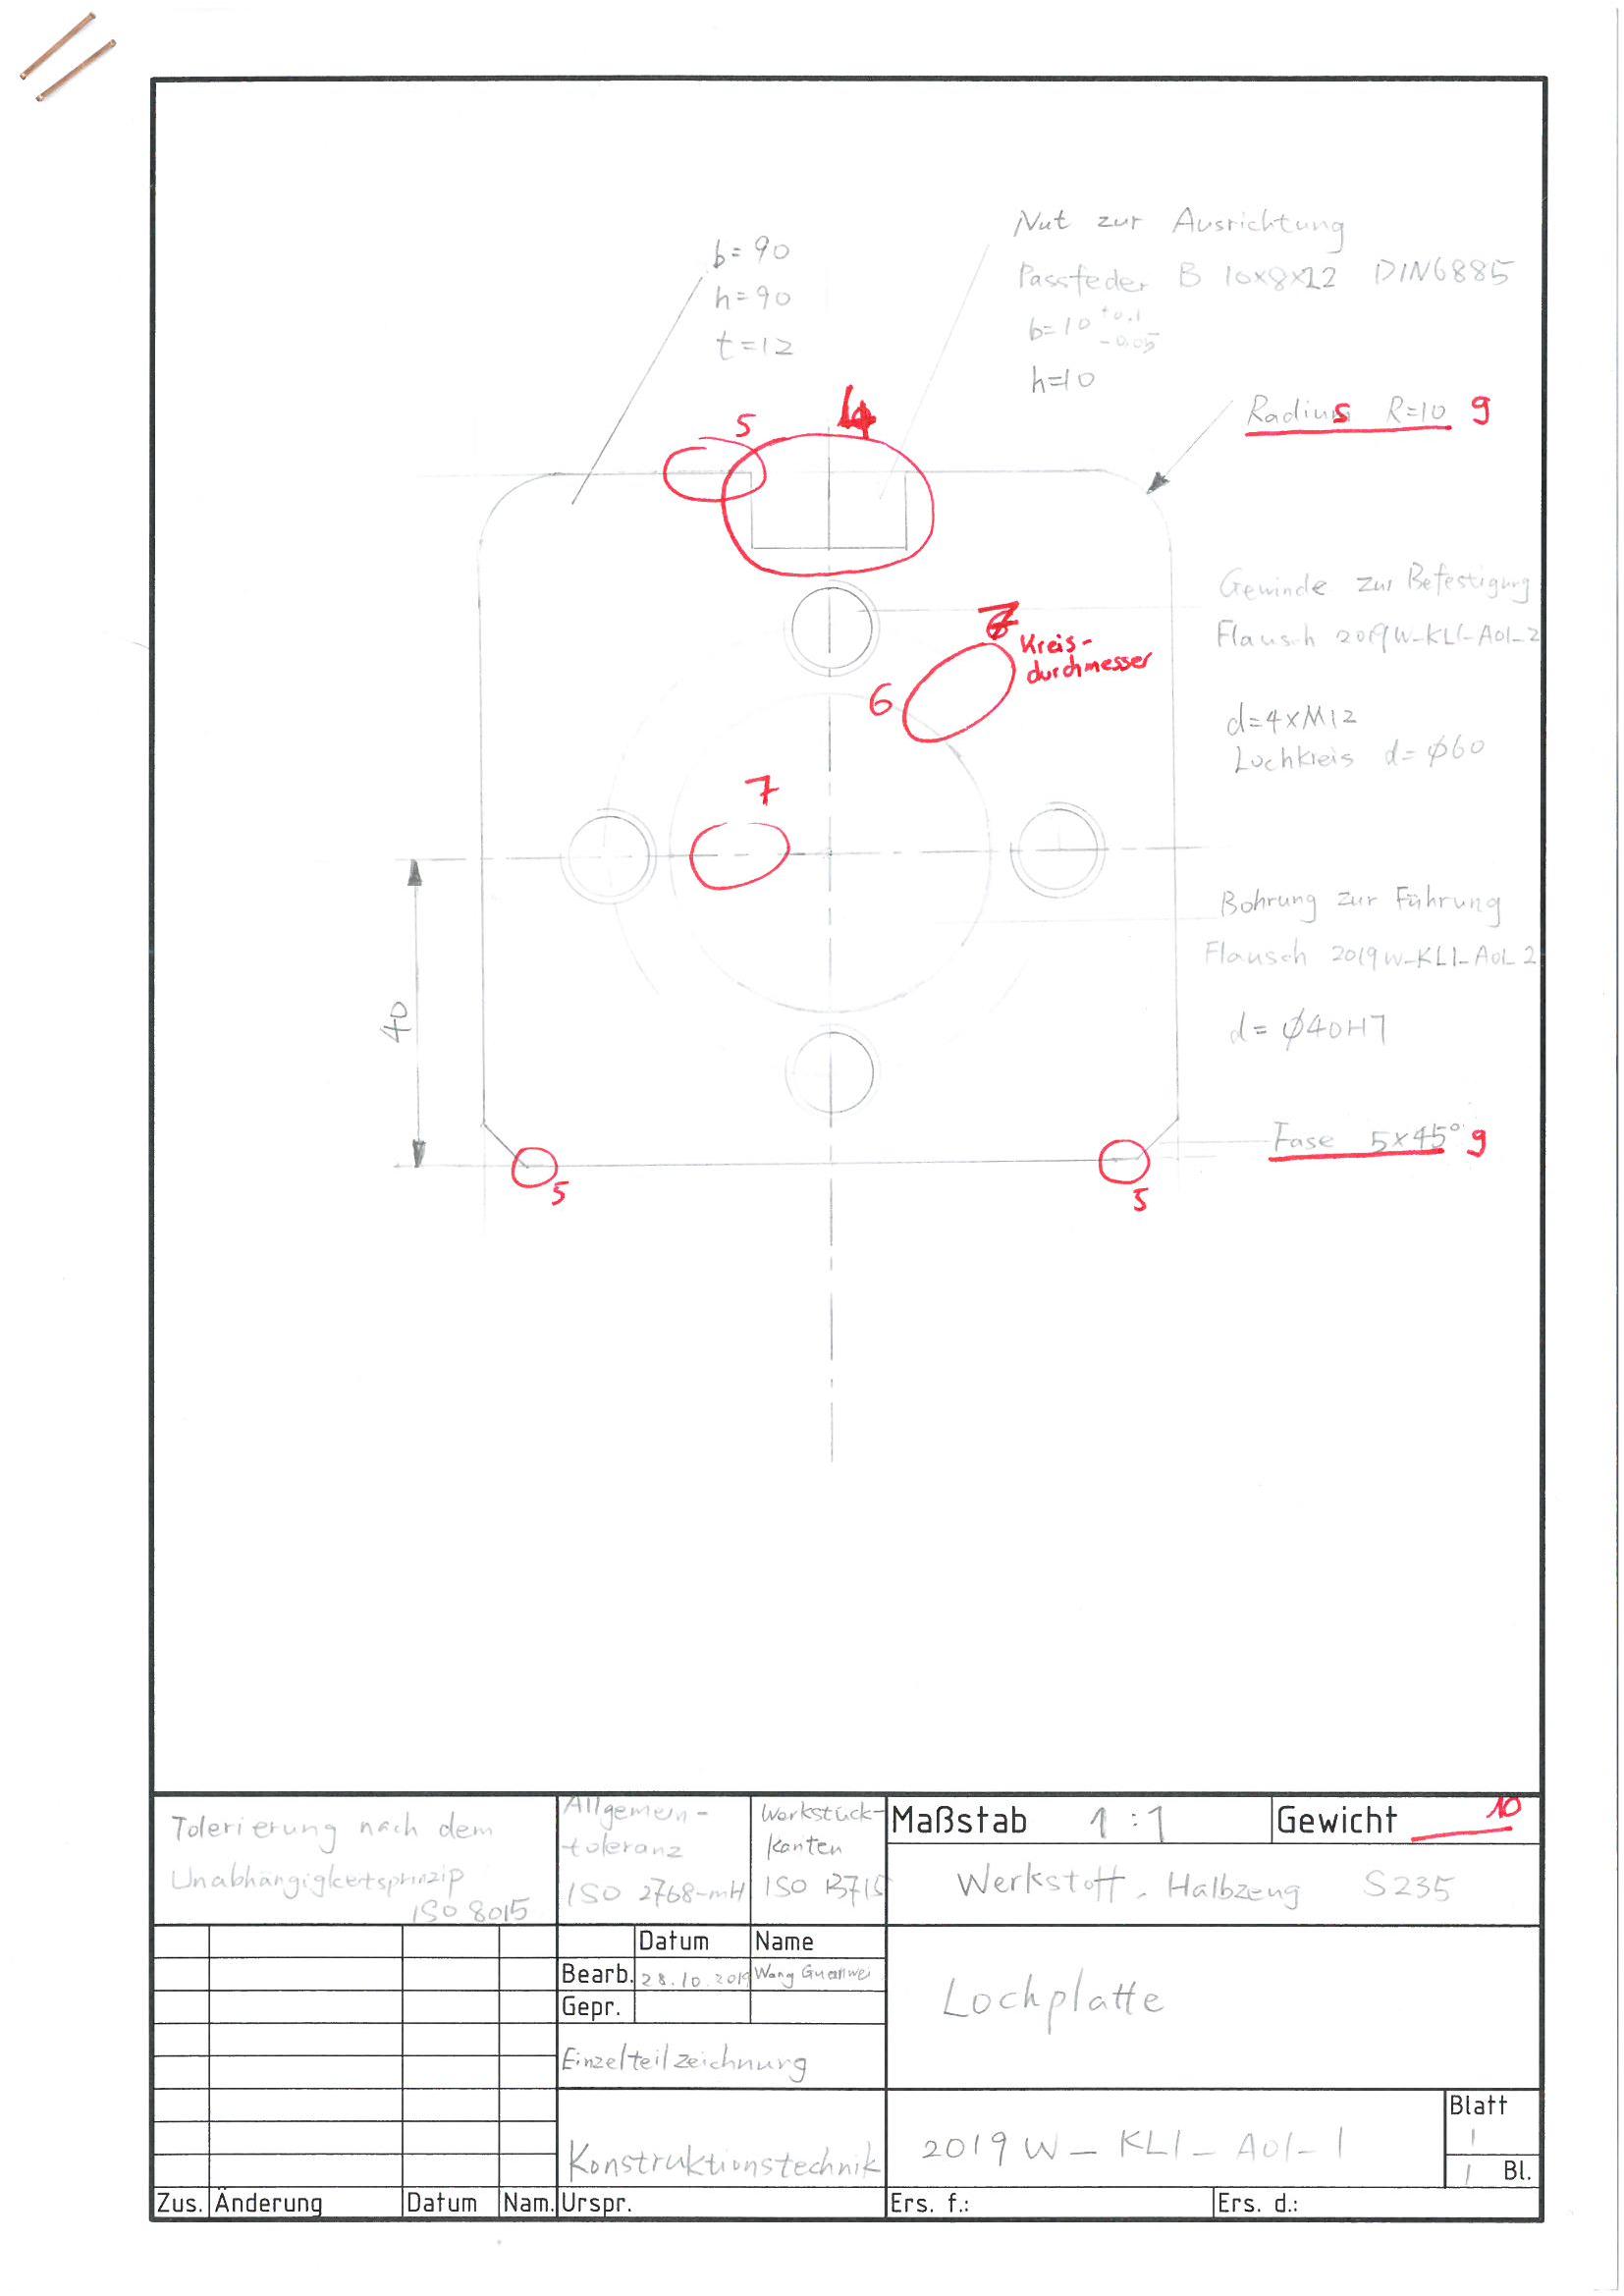 b=90
h=90
t=12
Nut zur Ausrichtung
Passfeder B 10x8x22 DIN6885
b=10 +0.1
-0.05
h=10
Radius R=10 9
5
4
Gewinde zur Befestigung
Flausch 2019W_KL1_A01_2
7
Kreis-
durchmesser
6
d=4xM12
Lochkreis d=ϕ60
7
Bohrung zur Führung
Flausch 2019W_KL1_A01_2
40
d= ϕ40H7
Fase 5x45° 9
5
5
Tolerierung nach dem
Unabhängigkeitsprinzip
ISO 8015
Allgemein-
toleranz
ISO 2768-mH
Werkstück-
kanten
ISO 13715
Maßstab 1:1
Gewicht 10
Werkstoff, Halbzeug S235
Datum Name
Bearb. 28.10.2019 Wang Guanwei
Gepr.
Lochplatte
Einzelteilzeichnung
Konstruktionstechnik
2019W_KL1_A01_1
Blatt
1
1 Bl.
Zus. Änderung Datum Nam. Urspr. Ers. f.: Ers. d.: